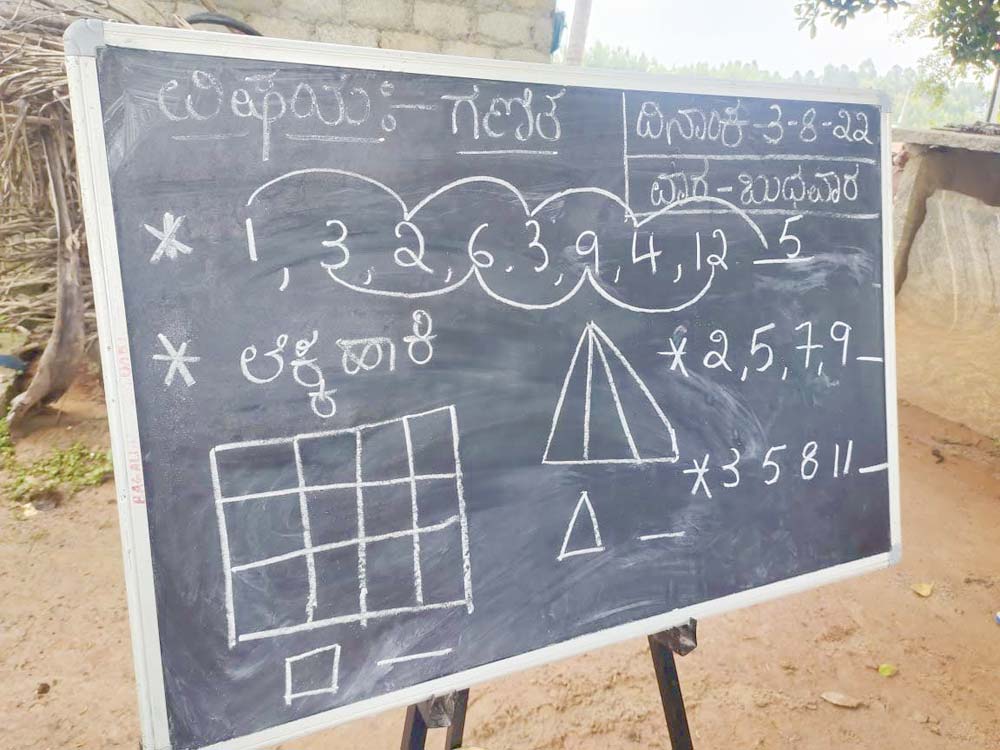 ವಿಷಯ :- ಗಣಿತ
ದಿನಾಂಕ -3-8-22
ವಾರ - ಬುಧವಾರ
* 1, 3, 2, 6, 3, 9, 4, 12 5
* ಲೆಕ್ಕ ಹಾಕಿ
* 2, 5, 7, 9 _
* 3 5 8 11 _